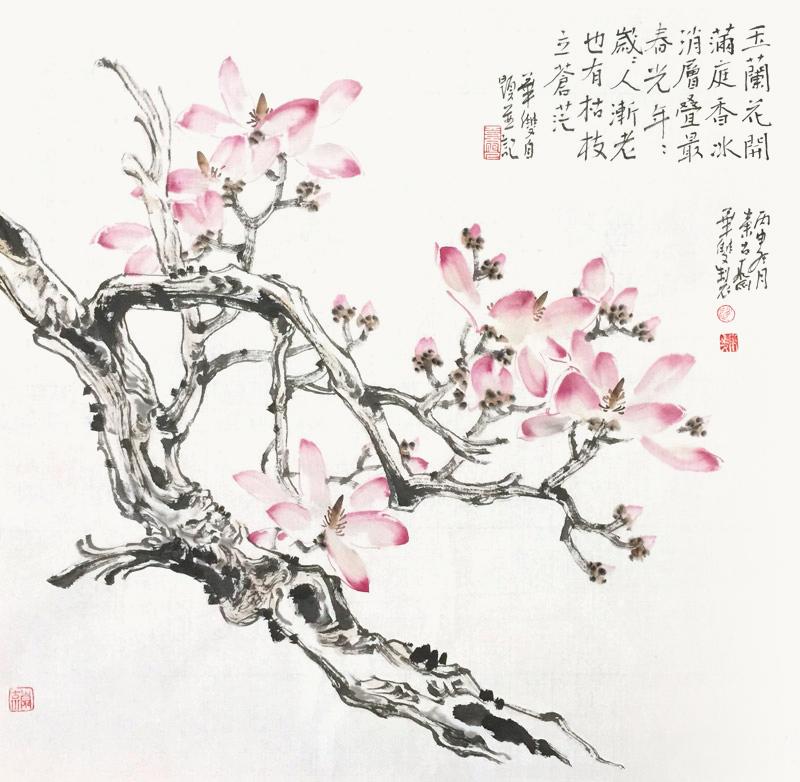 玉蘭花開
滿庭香冰
消層疊最
春光年〻
歲〻人漸老
也有枯枝
立蒼茫
華雙自
題並記
丙申冬月
華雙製